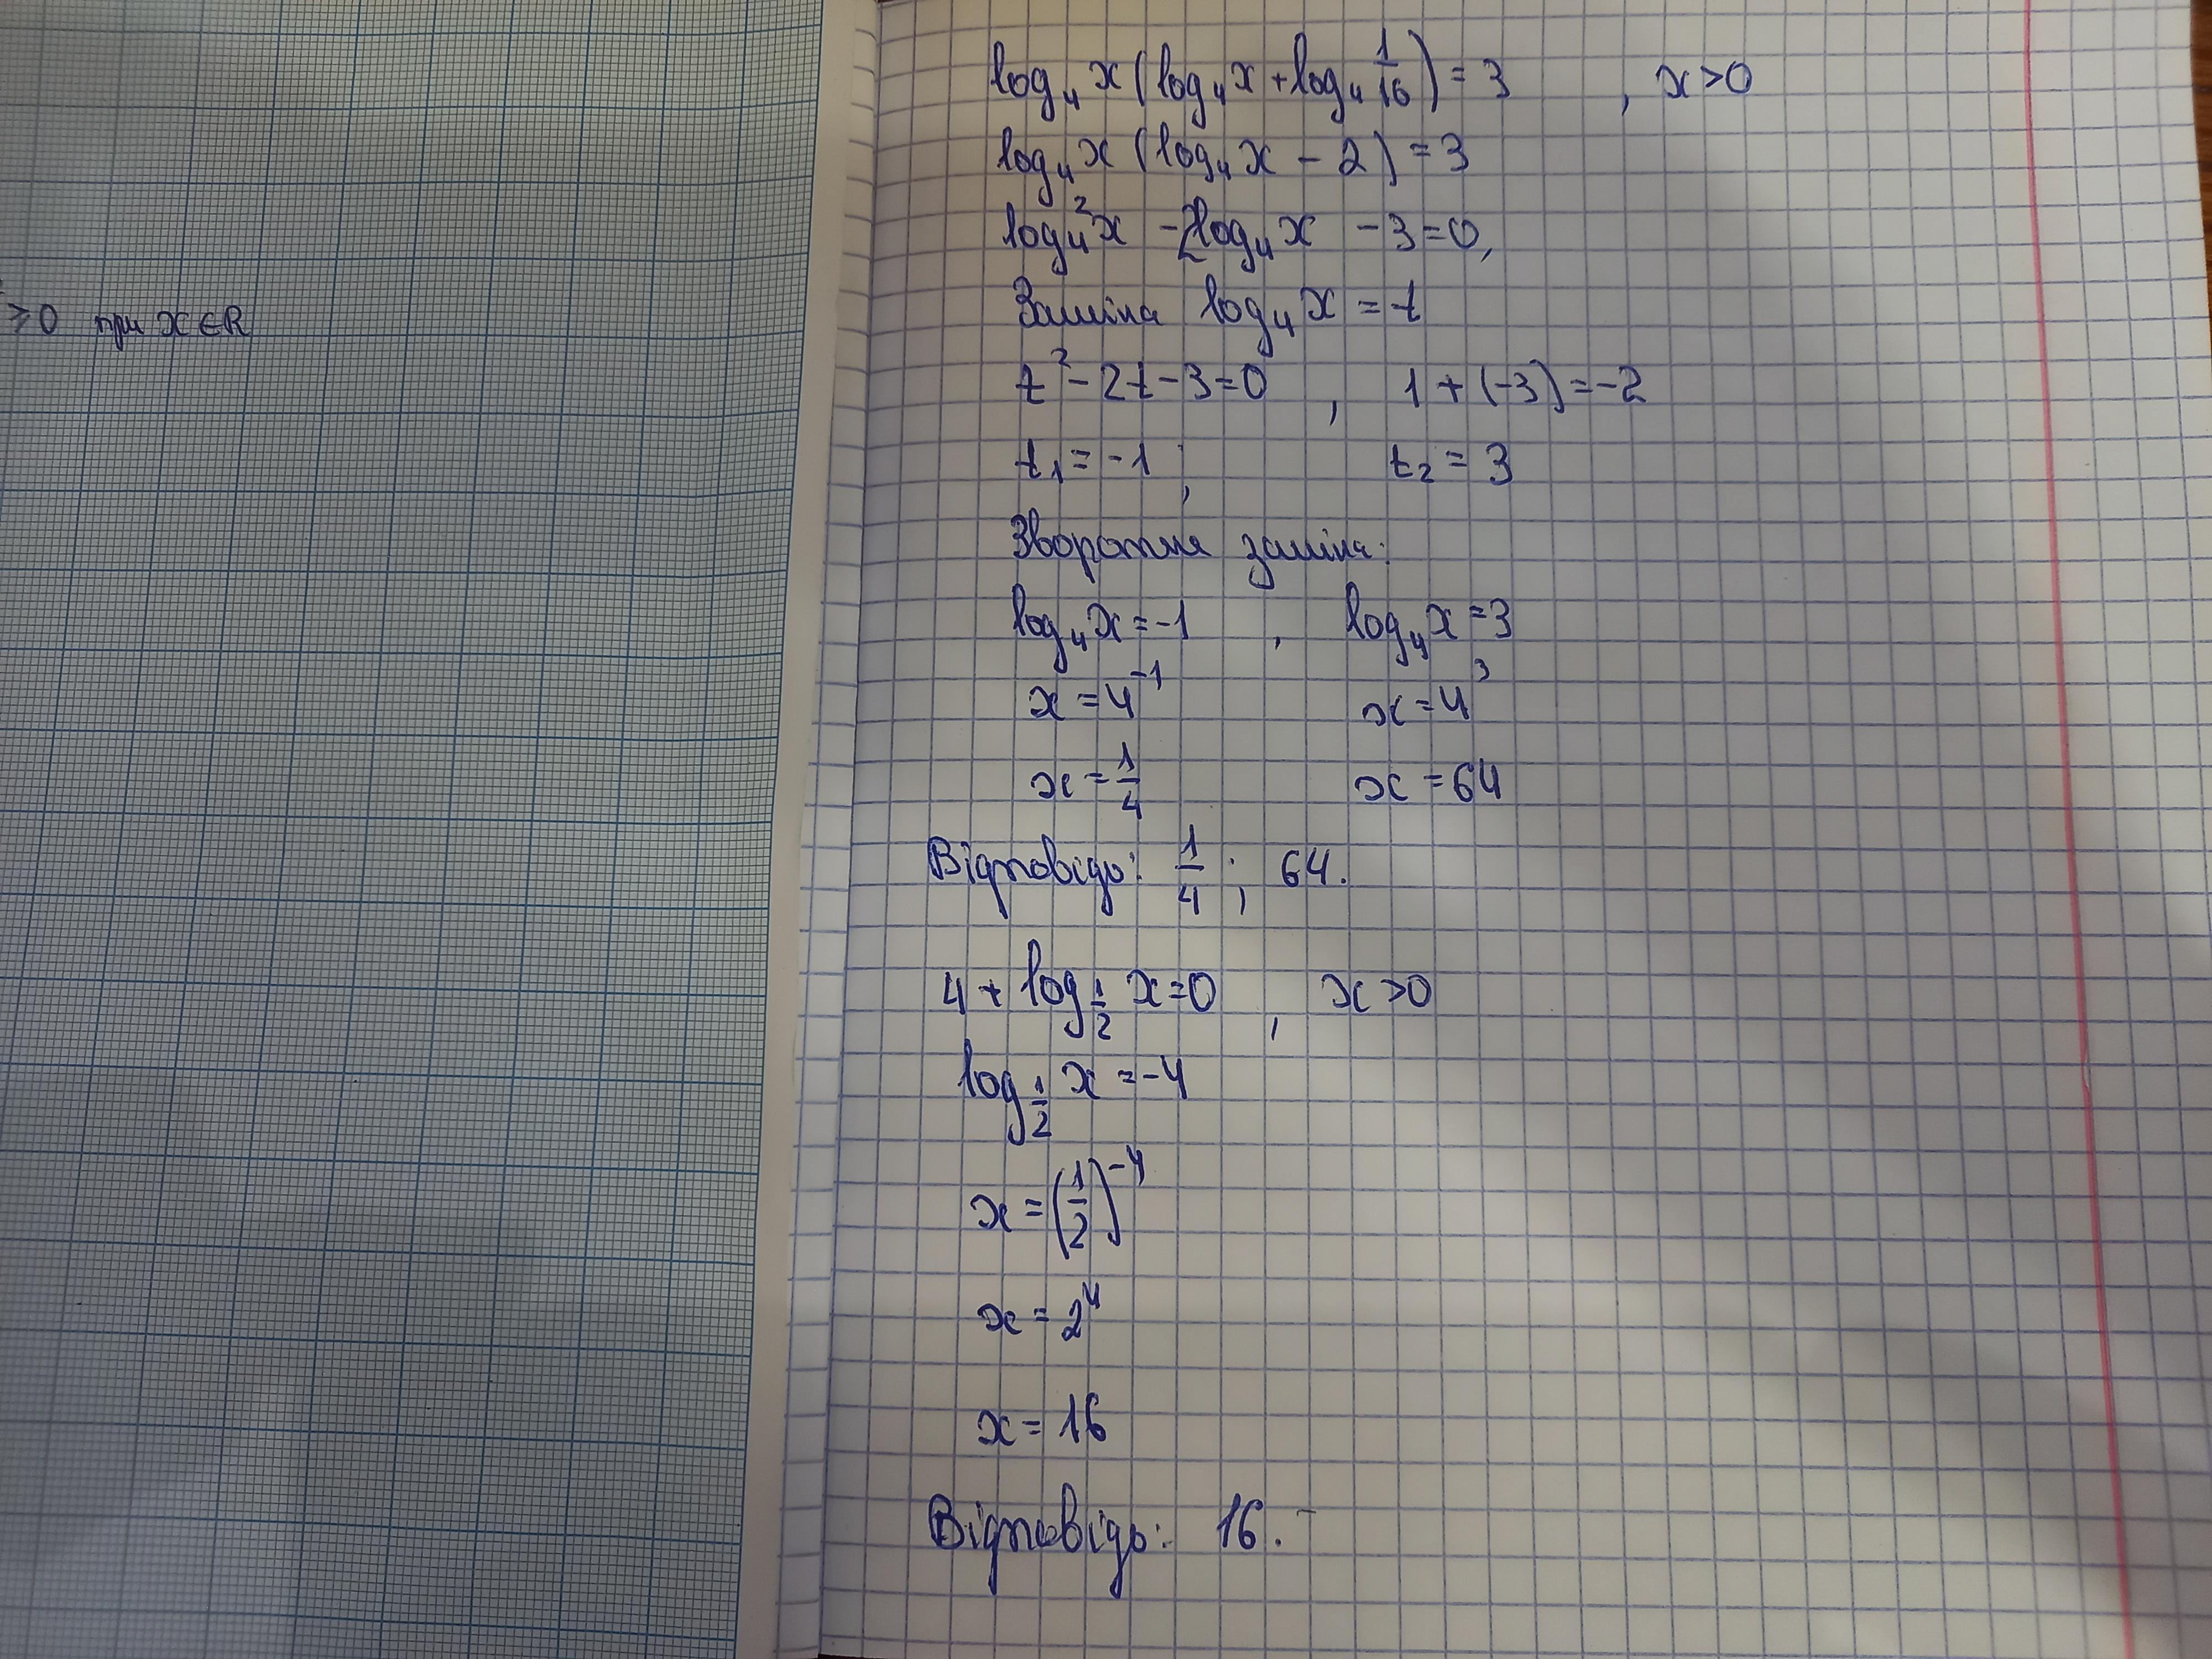 ≥0 при x∈R
log₄ x (log₄ x + log₄ 1/16) = 3 , x > 0
log₄ x (log₄ x − 2) = 3
log₄² x − 2log₄ x − 3 = 0,
Заміна log₄ x = t
t² − 2t − 3 = 0 , 1 + (−3) = −2
t₁ = −1 ; t₂ = 3
Зворотня заміна:
log₄ x = −1 , log₄ x = 3
x = 4⁻¹ x = 4³
x = 1/4 x = 64
Відповідь: 1/4 ; 64.
4 + log_{1/2} x = 0 , x > 0
log_{1/2} x = −4
x = (1/2)⁻⁴
x = 2⁴
x = 16
Відповідь: 16.